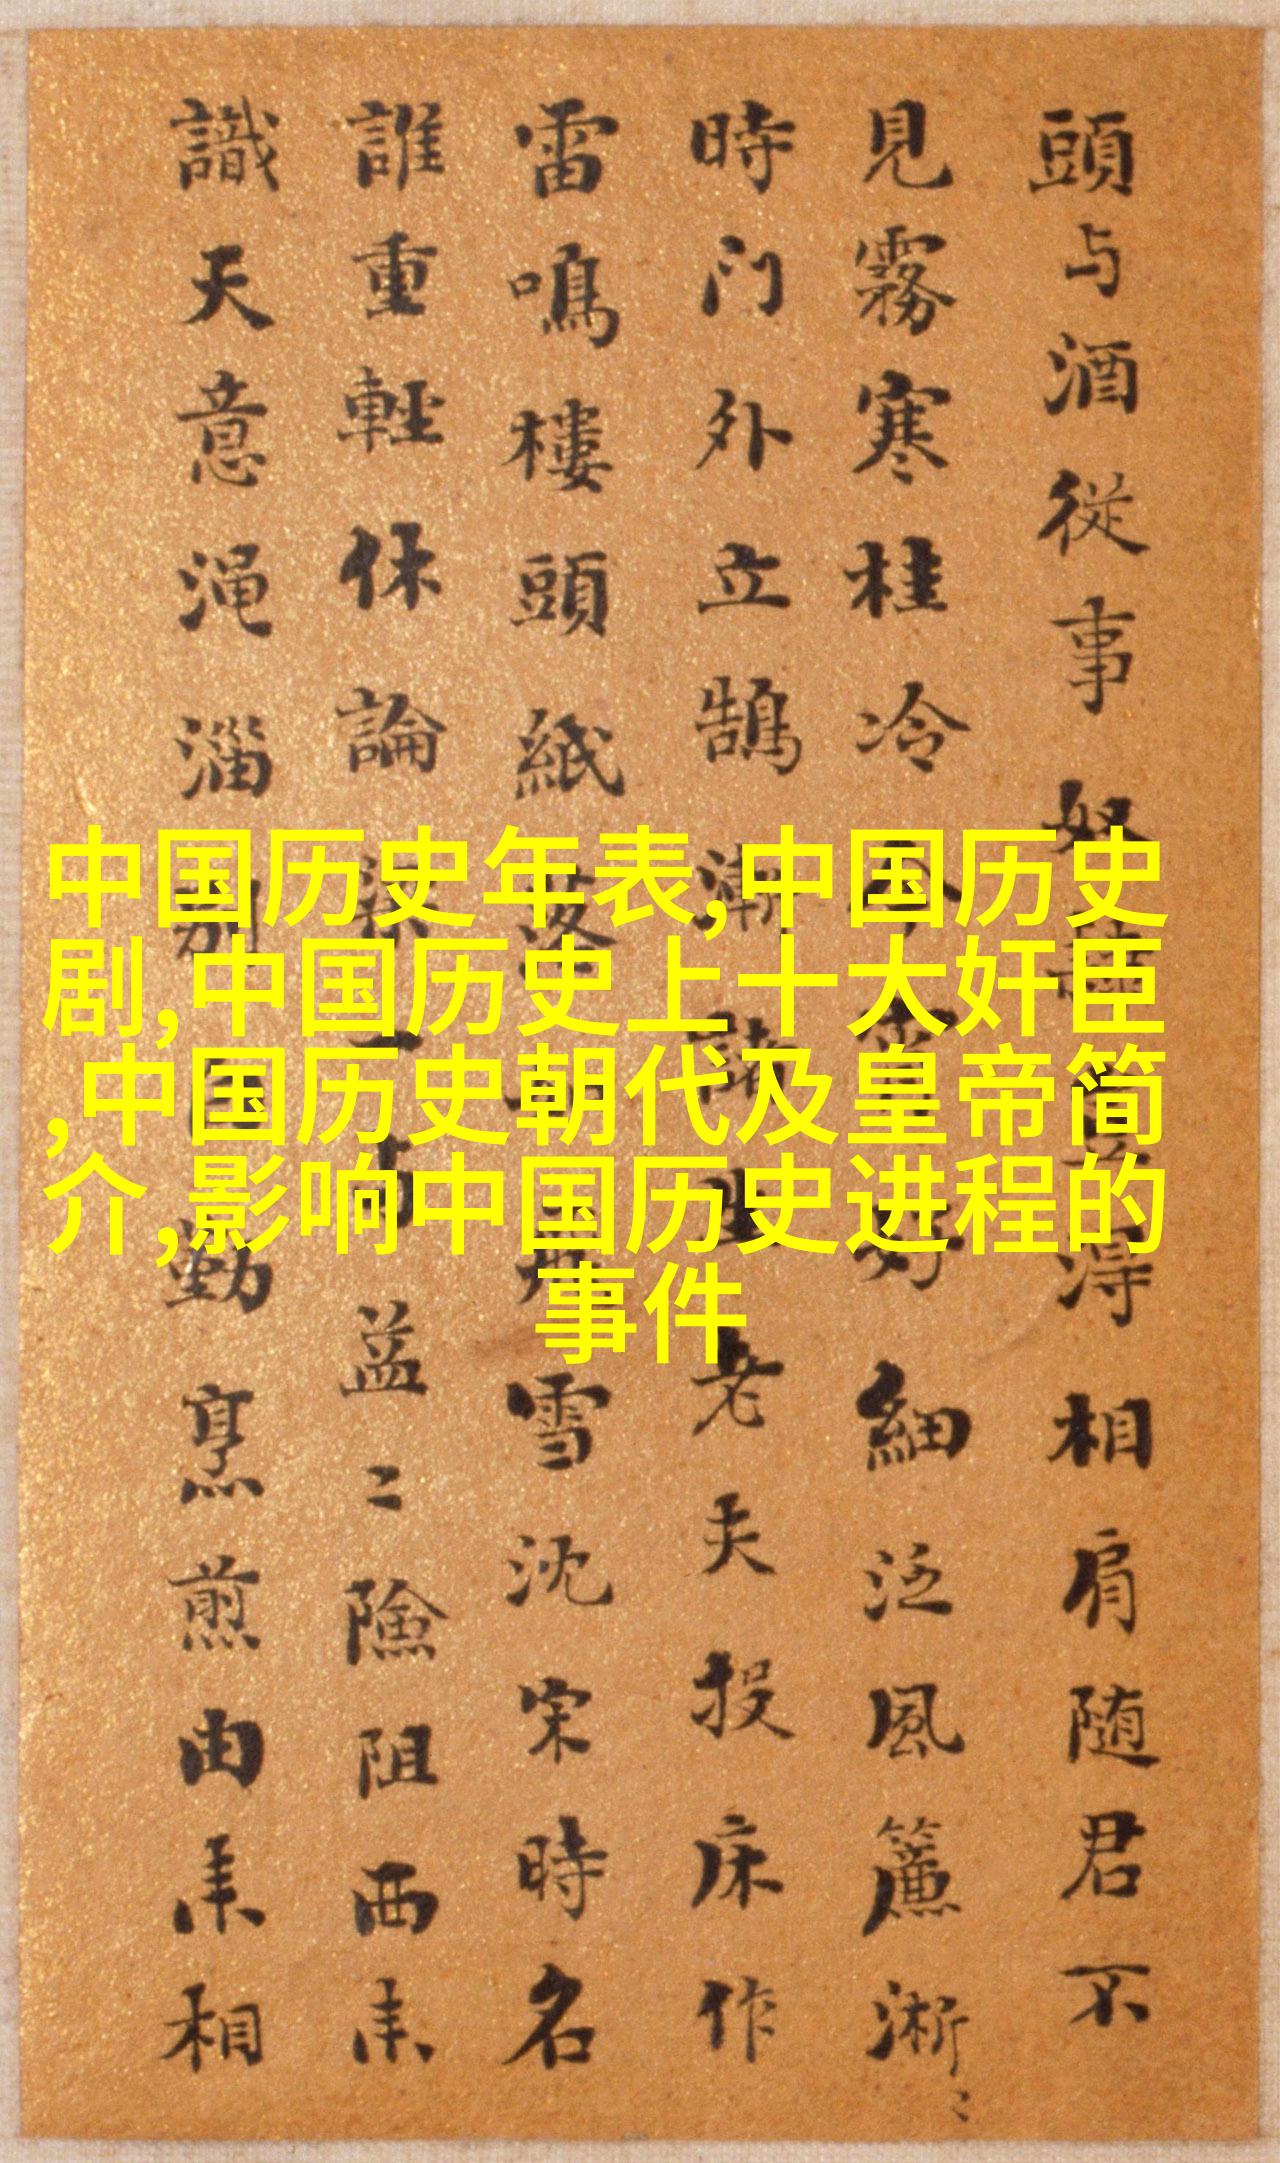 頭与酒從事奴得相肩随君不
見霧寒桂冷今好細泛風簾淅〻
時门外立鵠漸諸老夫投床作
雷鳴樓頭紙落雪沈宋時名
誰重輕休論益〻險阻西来
識天意渑淄别勤烹煎由来相
中国历史年表,中国历史
剧,中国历史上十大奸臣
,中国历史朝代及皇帝简
介,影响中国历史进程的
事件